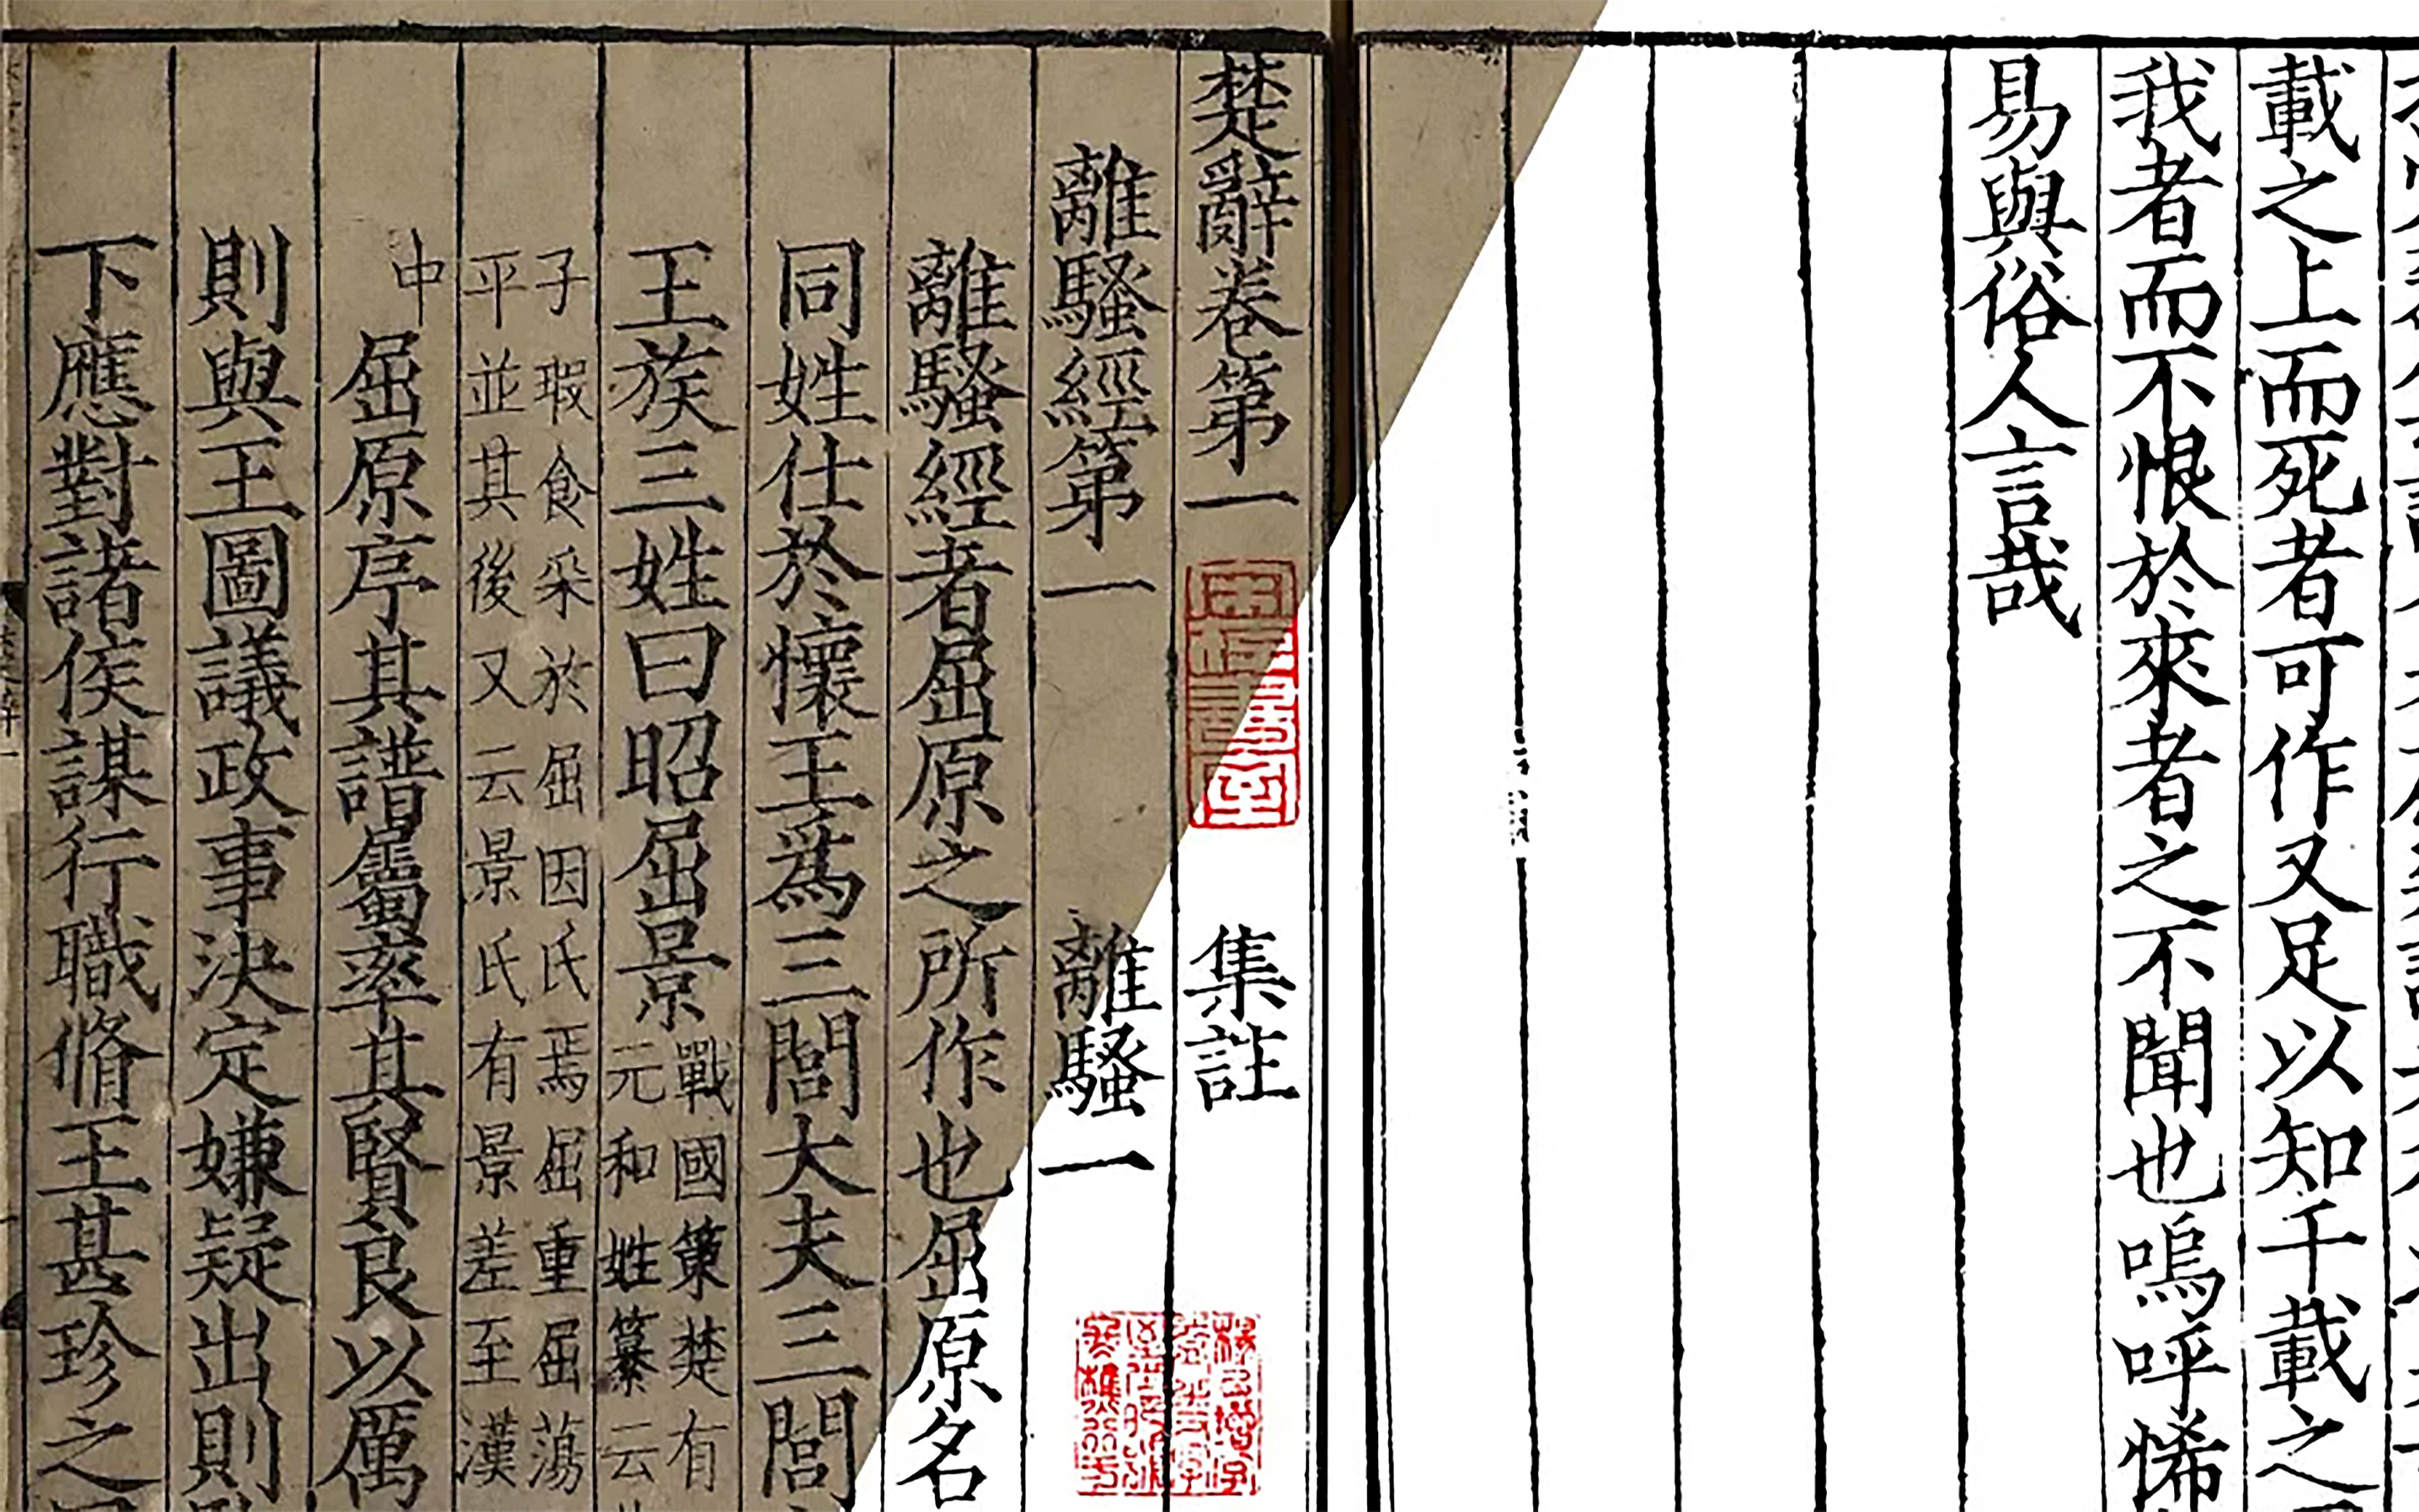 載之上而死者可作又足以知千載之
我者而不恨於來者之不聞也嗚呼悕
易與俗人言哉
楚辭卷第一 集註
離騷經第一 離騷一
離騷經者屈原之所作也屈原名
同姓仕於懷王爲三閭大夫三閭
王族三姓曰昭屈景
戰國策楚有
元和姓纂云
子瑕食采於屈因氏焉屈重屈蕩
平並其後又云景氏有景差至漢
中
屈原序其譜屬率其賢良以厲
則與王圖議政事決定嫌疑出則
下應對諸侯謀行職脩王甚珍之